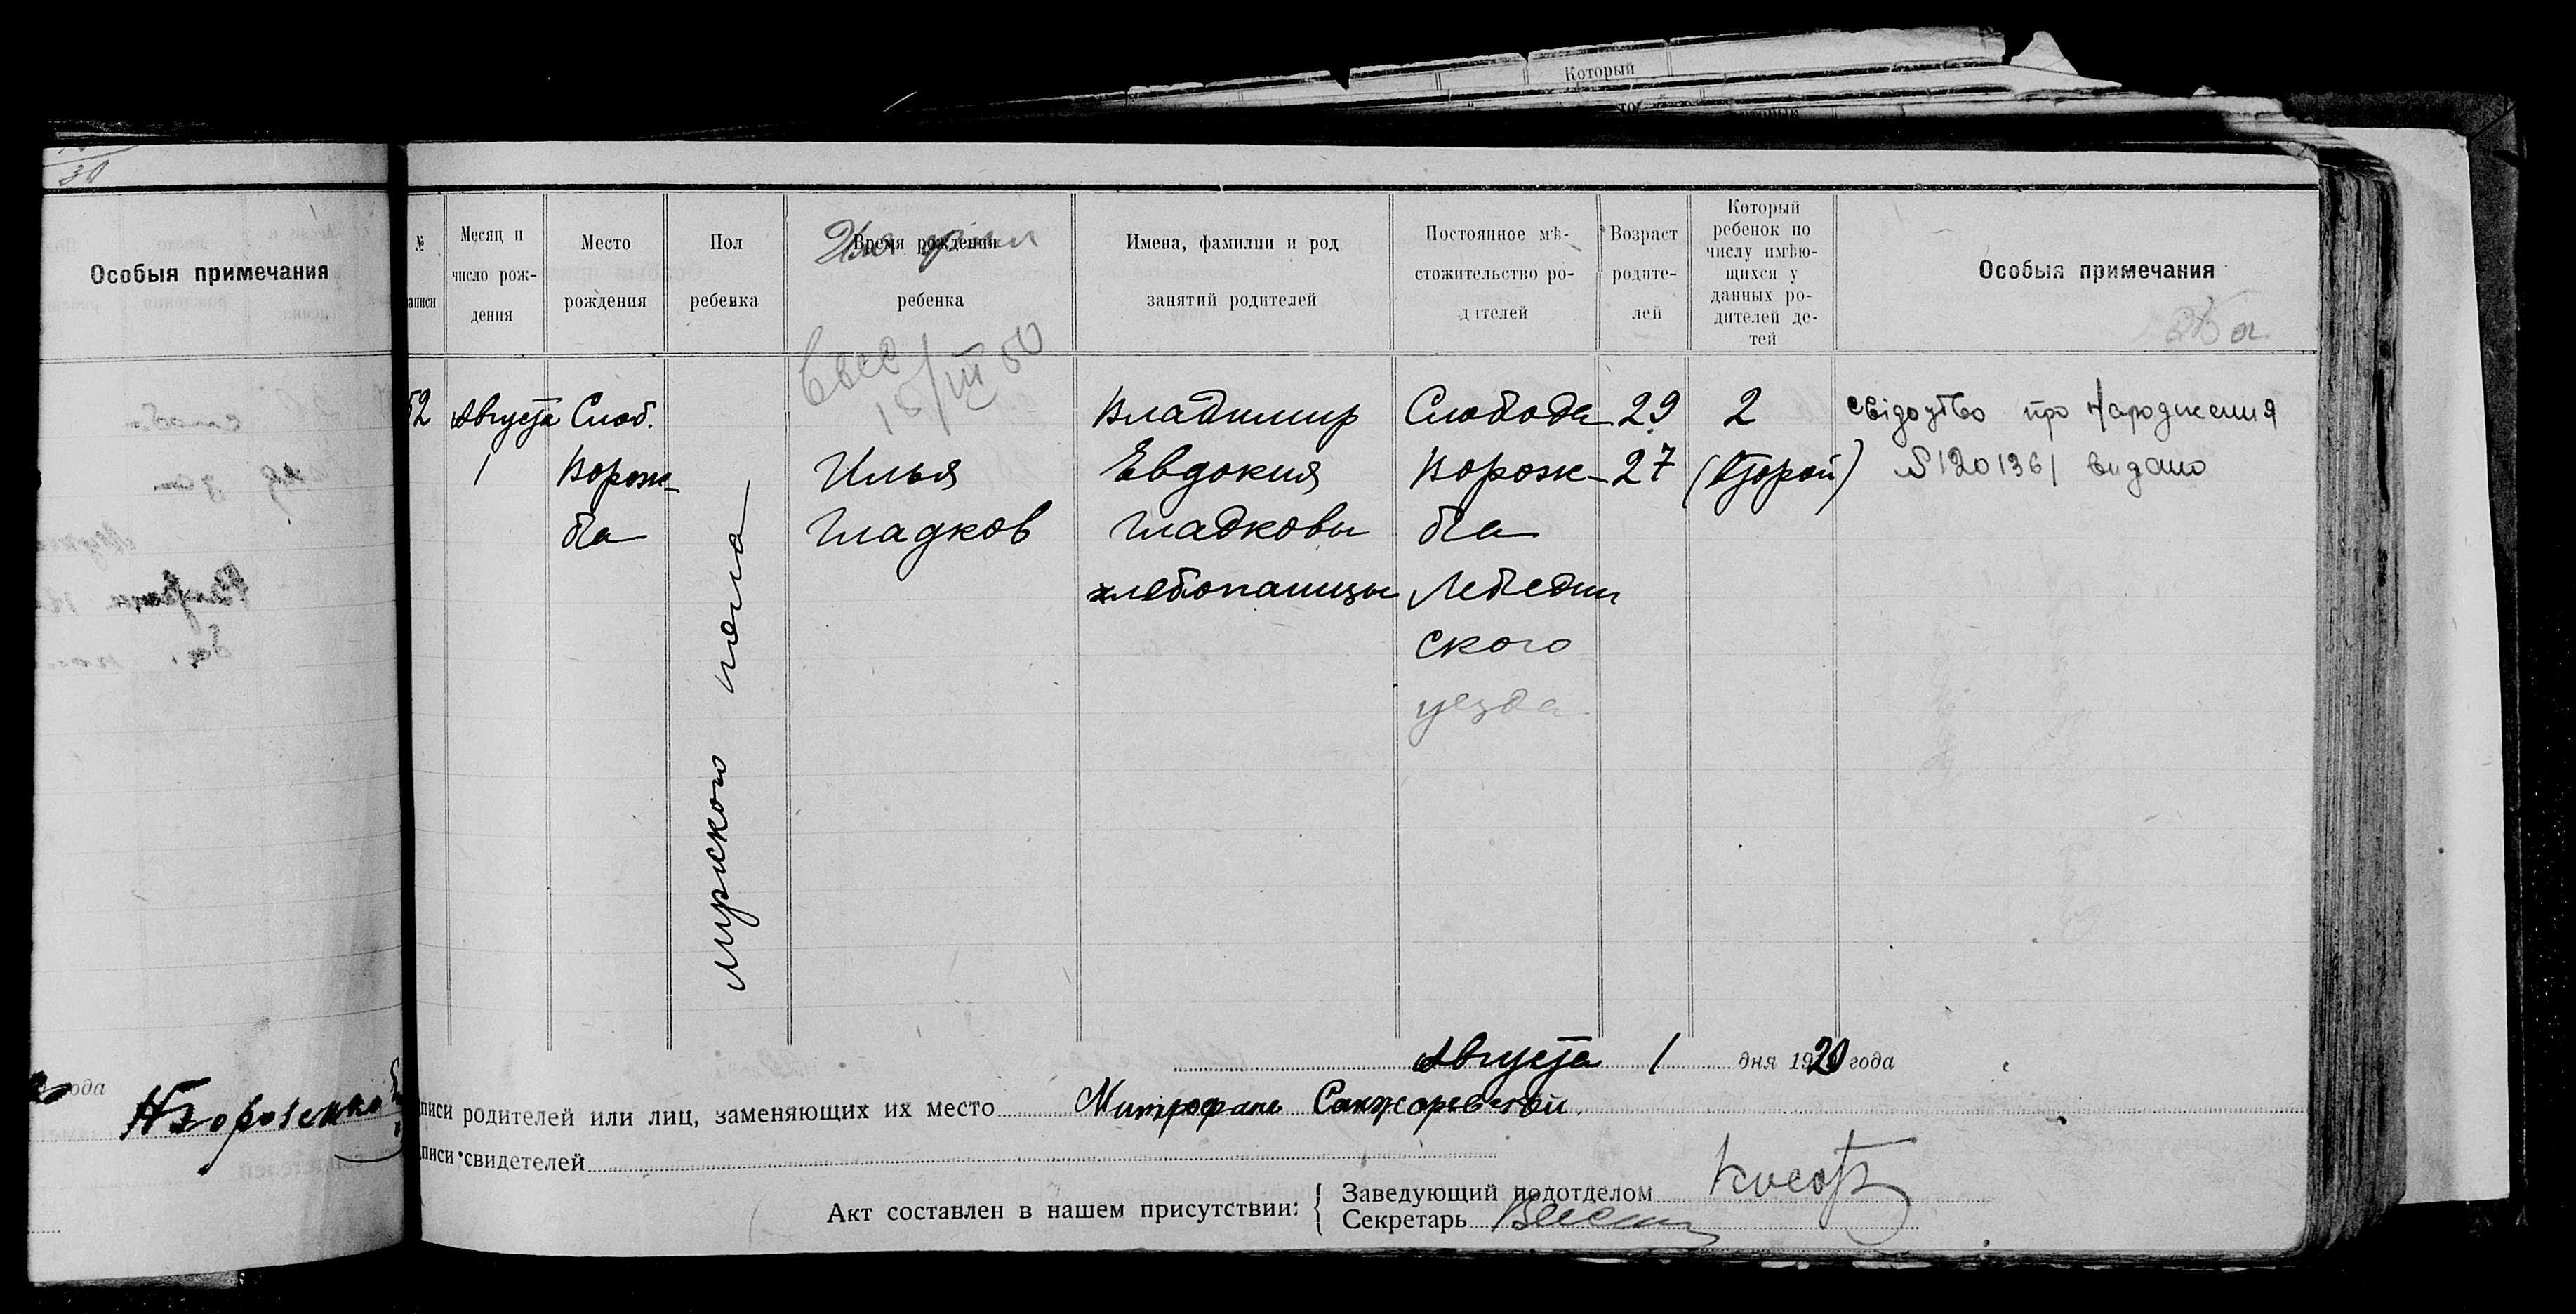 Который
30
Особыя примечания
года
№
аписи
Месяц и
число рож-
дения
Место
рождения
Пол
ребенка
Время рождения
ребенка
Имена, фамилии и род
занятий родителей
Постоянное мѣ-
стожительство ро-
дителей
Возраст
родите-
лей
Который
ребенок по
числу имѣю-
щихся у
данных ро-
дителей де-
тей
Особыя примечания
52
Августа
1
Слоб.
Ворож-
ба
мужского пола
Илья
Гладков
Владимир
Евдокия
Гладковы
хлебопашцы
Слобода
Ворож-
ба
Лебедин
ского
уезда
29
27
2
(Второй)
свідоцтво про народження
120136 видано
Августа 1 дня 1920 года
писи родителей или лиц, заменяющих их место Митрофане
писи свидетелей
Акт составлен в нашем присутствии:
Заведующий подотделом
Секретарь